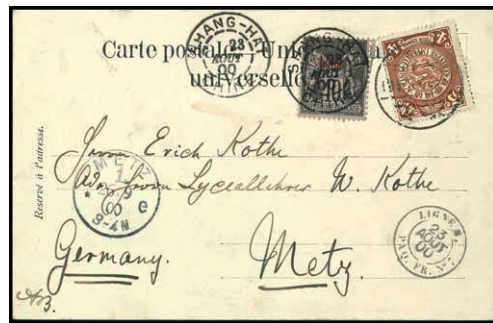 Carte postale Union
universelle
SHANG-HAI
23
AOUT
00
CHINE
Réservé à l'adresse.
Herrn Erich Kothe
Adr. Herrn Lyceallehrer W. Kothe
METZ
1
9
00
8-9N
Germany.
Metz.
LIGNE N.
23
AOUT
00
PAQ. FR. Nº